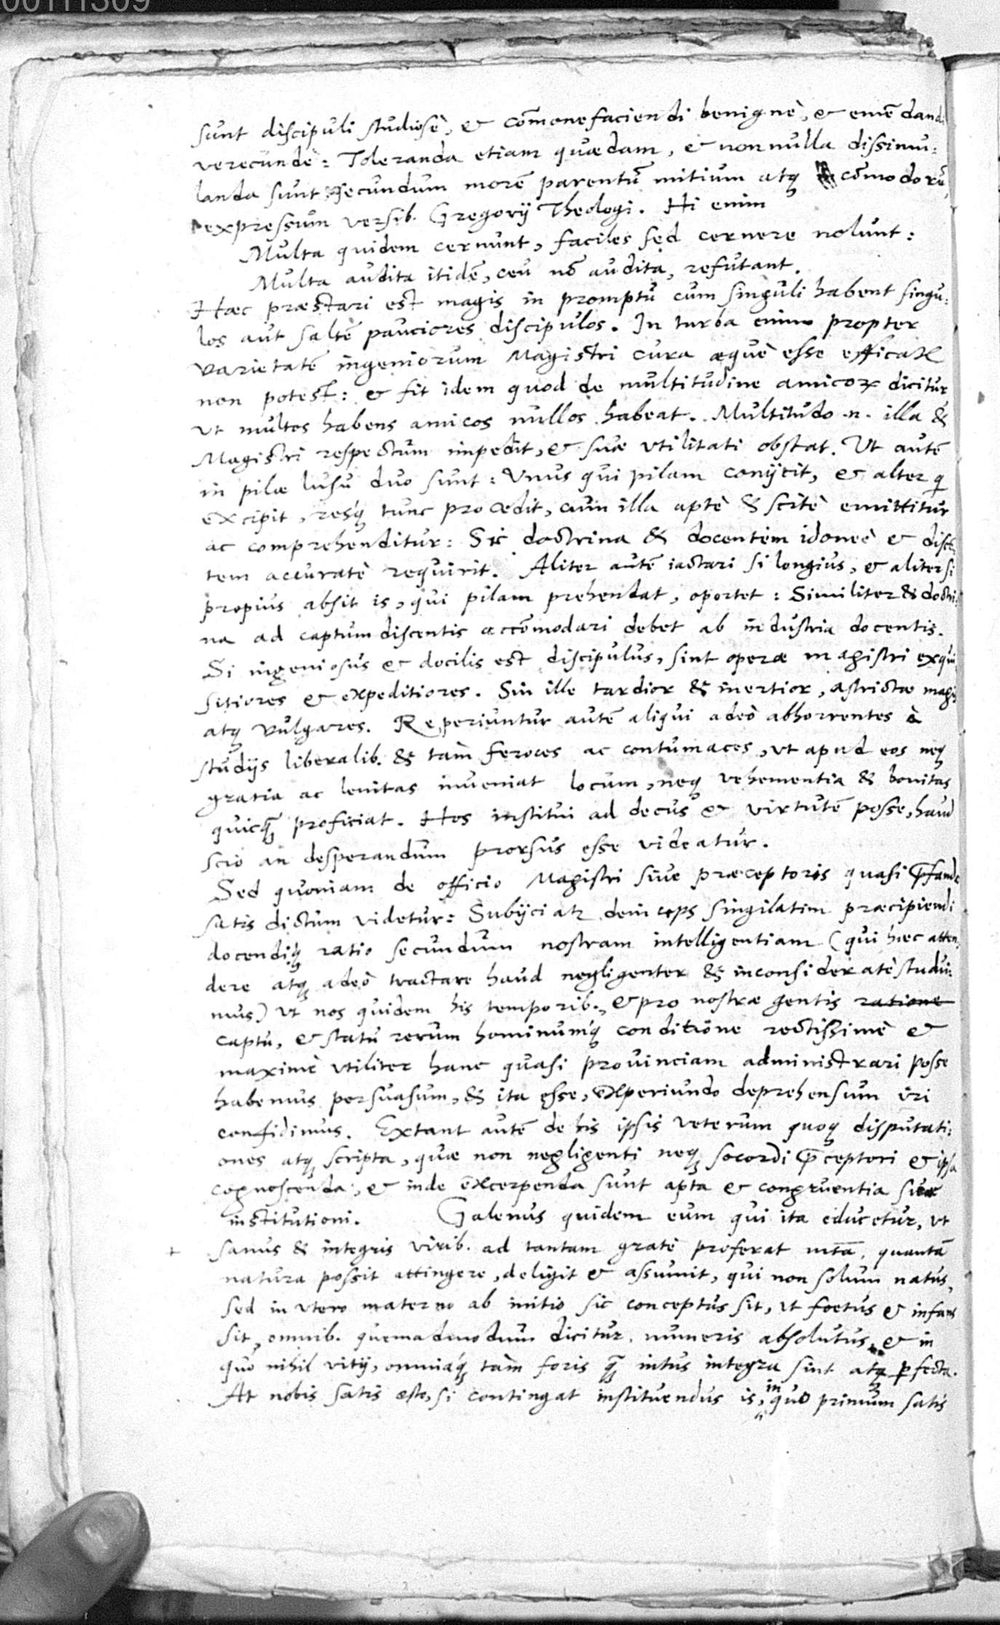 00111309
sunt discipuli studiosè, & com̄onefaciendi benignè, & emēdand
verecundè: Toleranda etiam quædam, & nonnulla dissimu:
landa sunt secundum morē parentū mitium atq; com̄odorū,
expressum versib. Gregorij Theologi. Hi enim
Multa quidem cernunt, faciles sed cernere nolunt:
Multa audita itidē, ceu nō audita, refutant.
Hæc præstari est magis in promptu cum singuli habent singu:
los aut saltē pauciores discipulos. In turba enim propter
varietatē ingeniorum Magistri cura æquè esse efficax
non potest: & fit idem quod de multitudine amicoꝝ dicitur
ut multos habens amicos nullos habeat. Multitudo .n. illa &
Magistri respectum impedit, & suæ utilitati obstat. Ut autē
in pilæ lusu duo sunt: Unus qui pilam conijcit, & alter q̄
excipit, resq; tunc procedit, cum illa aptè & scitè emittitur
ac comprehenditur: Sic doctrina & docentem idoneè & discē
tem accuratè requirit. Aliter autē iactari si longius, & aliter si
propius absit is, qui pilam prehendat, oportet: Similiter & doctri:
na ad captum discentis accōmodari debet ab industria docentis.
Si ingeniosus & docilis est discipulus, sint operæ magistri exqui
sitiores & expeditiores. Sin ille tardior & inertior, astrictæ magis
atq; vulgares. Reperiuntur autē aliqui adeò abhorrentes à
studijs liberalib. & tam feroces ac contumaces, ut apud eos neq;
gratia ac lenitas inveniat locum, neq; vehementia & bonitas
quicq̃ proficiat. Hos institui ad decus & virtutē posse, haud
scio an desperandum prorsus esse videatur.
Sed quoniam de officio Magistri sive præceptoris quasi p̄fando
satis dictum videtur: Subijciatr deinceps singilatim præcipiendi
docendiq; ratio secundum nostram intelligentiam (qui hæc atten
dere atq; adeò tractare haud negligenter & inconsideratè studui:
mus) ut nos quidem his temporib. & pro nostræ gentis ratione
captu, & statu rerum hominumq; conditione rectissimè &
maximè utiliter hanc quasi provinciam administrari posse
habemus persuasum, & ita esse, experiundo deprehensum iri
confidimus. Extant autē de his ipsis veterum quoq; disputati:
ones atq; scripta, quæ non negligenti neq; socordi p̄ceptori & ipsa
cognoscenda, & inde excerpenda sunt apta & congruentia suæ
institutioni. Galenus quidem eum qui ita educetur, ut
+ sanus & integris virib. ad tantam gratè proferat vitā, quantā
natura possit attingere, deligit & assumit, qui non solum natus,
sed in utero materno ab initio sic conceptus sit, ut foetus & infans
sit, omnib. quemadmodum dicitur, numeris absolutus, & in
quo nihil vitij, omniaq; tam foris q̃ intus integra sint atq; p̄fecta.
At nobis satis esto, si contingat instituendus is, in quo primum satis